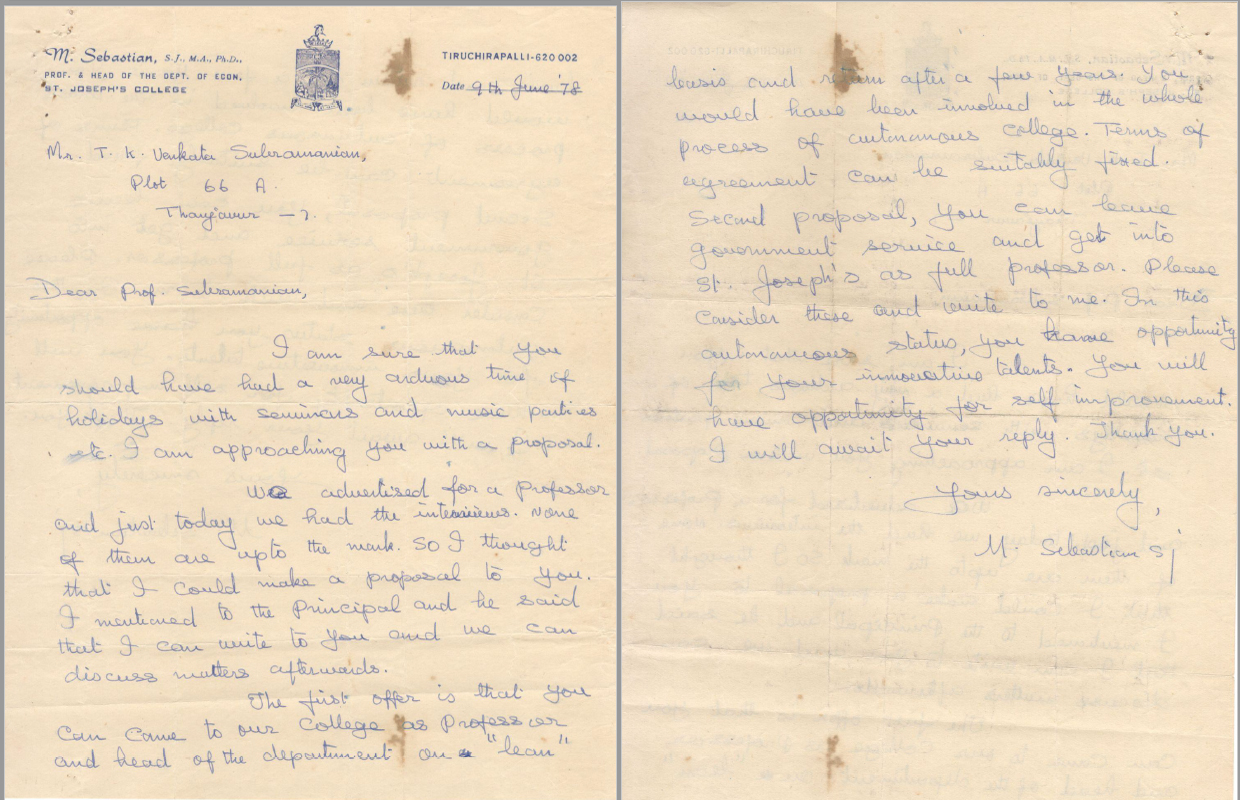 M. Sebastian, S.J., M.A., Ph.D.,
PROF. & HEAD OF THE DEPT. OF ECON.
ST. JOSEPH'S COLLEGE
TIRUCHIRAPALLI-620 002
Date 9th June '78
Mr. T. K. Venkata Subramanian,
Plot 66 A.
Thanjavur - 7.
Dear Prof. Subramanian,
I am sure that you
should have had a very arduous time of
holidays with seminars and music parties
etc. I am approaching you with a proposal.
We advertised for a Professor
and just today we had the interviews. None
of them are upto the mark. So I thought
that I could make a proposal to you.
I mentioned to the Principal and he said
that I can write to you and we can
discuss matters afterwards.
The first offer is that you
can come to our college as Professor
and head of the department on "lean"
basis and return after a few years. You
would have been involved in the whole
process of autonomous college. Terms of
agreement can be suitably fixed.
Second proposal, you can leave
government service and get into
St. Joseph's as full professor. Please
consider these and write to me. In this
autonomous status, you have opportunity
for your innovative talents. You will
have opportunity for self improvement.
I will await your reply. Thank you.
Yours sincerely,
M. Sebastian sj